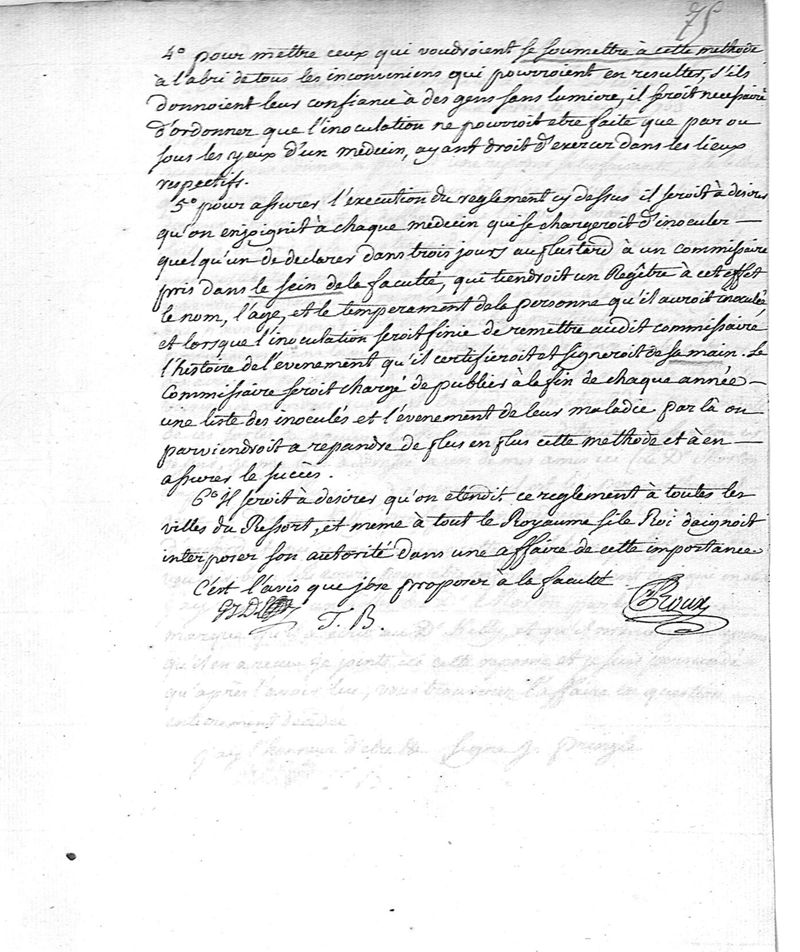 75
4° pour mettre ceux qui voudroient se soumettre à cette methode
à l'abri de tous les inconviniens qui pourroient en resulter, s'ils
donnoient leur confiance à des gens sans lumiere, il seroit necessaire
d'ordonner que l'inoculation ne pourroit etre faite que par ou
sous les yeux d'un medecin, ayant droit d'exercer dans les lieux
respectifs.
5° pour assurer l'execution du reglement cy dessus il seroit à desirer
qu'on enjoignit à chaque medecin qui se chargeroit d'inoculer —
quelqu'un de declarer dans trois jours au plus tard à un commissaire
pris dans le sein de la faculté, qui tiendroit un Regitre à cet effet
le nom, l'age, et le temperament de la personne qu'il auroit inoculée
et lorsque l'inoculation seroit finie de remettre audit commissaire
l'histoire de l'evenement qu'il certifieroit et signeroit de sa main. Le
Commissaire seroit chargé de publier à la fin de chaque année —
une liste des inoculés et l'évenement de leur maladie par là on
parviendroit a repandre de plus en plus cette methode et à en —
assurer le succès.
6° Il seroit à desirer qu'on etendit ce reglement à toutes les
villes du Ressort, et meme à tout le Royaume si le Roi daignoit
interposer son autorité dans une affaire de cette importance
C'est l'avis que j'ose proposer à la faculté
Roux
T. B.
marque qu'il a ecrit au D. Kelly, et qu'il
qu'il en a recue je joints ici cette reponse et je suis persuadé
qu'après l'avoir lue, vous trouverez l'affaire en question
entierement decidee
j'ay l'honneur d'etre &c signe J. Pringle